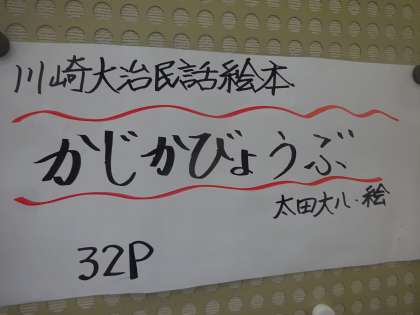 川崎大治民話絵本
かじかびょうぶ
太田大八・絵
32P